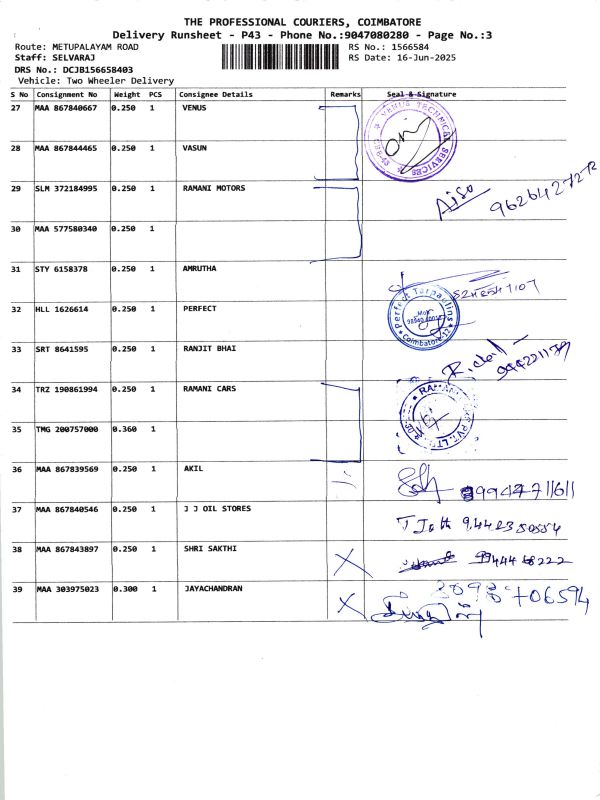 THE PROFESSIONAL COURIERS, COIMBATORE
Delivery Runsheet - P43 - Phone No.:9047080280 - Page No.:3
Route: METUPALAYAM ROAD RS No.: 1566584
Staff: SELVARAJ RS Date: 16-Jun-2025
DRS No.: DCJB156658403
Vehicle: Two Wheeler Delivery
S No Consignment No Weight PCS Consignee Details Remarks Seal & Signature
27 MAA 867840667 0.250 1 VENUS
VENUS TECHNICAL SERVICES
28 MAA 867844465 0.250 1 VASUN
29 SLM 372184995 0.250 1 RAMANI MOTORS
30 MAA 577580340 0.250 1
31 STY 6158378 0.250 1 AMRUTHA
32 HLL 1626614 0.250 1 PERFECT
Perfect Tarpaulins
Coimbatore-12
33 SRT 8641595 0.250 1 RANJIT BHAI
34 TRZ 190861994 0.250 1 RAMANI CARS
35 TMG 200757000 0.360 1
36 MAA 867839569 0.250 1 AKIL
37 MAA 867840546 0.250 1 J J OIL STORES
38 MAA 867843897 0.250 1 SHRI SAKTHI
39 MAA 303975023 0.300 1 JAYACHANDRAN